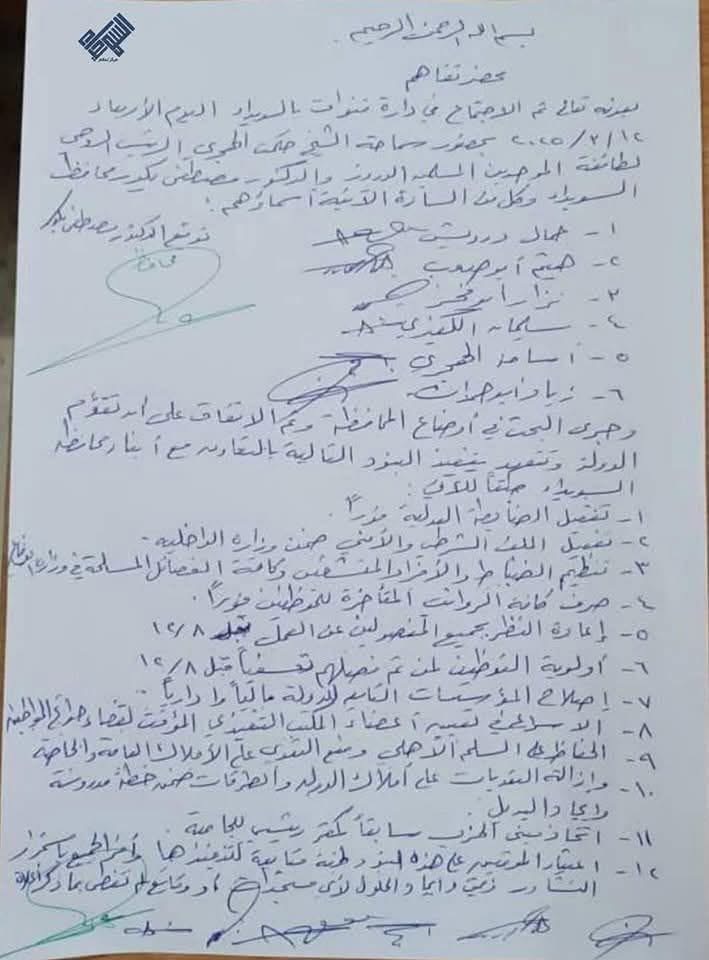 السويداء
بسم الله الرحمن الرحيم
محضر تفاهم
بعونه تعالى تم الاجتماع في دارة قنوات بالسويداء اليوم الأربعاء
١٢/٣/٢٠٢٥ بحضور سماحة الشيخ حكمت الهجري الرئيس الروحي
لطائفة الموحدين المسلمين الدروز والدكتور مصطفى بكور محافظ
السويداء وكل من السادة الآتية أسماؤهم:
توقيع الدكتور مصطفى بكور
محافظ
١- جمال درويش
٢- هيثم أبو صعب
٣- نزار أبو فخر
٤- سليمان الكفيري
٥- أسامة الهجري
٦- زياد أبو حمدان
وجرى البحث في أوضاع المحافظة وتم الاتفاق على أن تقوم
الدولة وتتعهد بتنفيذ البنود التالية بالتعاون مع أبناء محافظة
السويداء للآتي:
١- تفعيل الضابطة العدلية فوراً.
٢- تفعيل الملف الشرطي والأمني ضمن وزارة الداخلية.
٣- تنظيم الضباط والأفراد المنشقين وكافة الفصائل المسلحة في وزارة الدفاع
٤- صرف كافة الرواتب المتأخرة للموظفين فوراً.
٥- إعادة النظر بجميع المفصولين عن العمل قبل ١٢/٨
٦- أولوية التوظيف لمن تم فصلهم تعسفياً قبل ١٢/٨
٧- إصلاح المؤسسات التابعة للدولة مالياً وإدارياً.
٨- الاسراع في تعيين أعضاء المكتب التنفيذي المؤقت لقضاء حوائج المواطنين
٩- الحفاظ على السلم الأهلي ومنع التعدي على الأملاك العامة والخاصة
١٠- وإزالة التعديات على أملاك الدولة والطرقات ضمن خطة مدروسة
وإيجاد البديل.
١١- اتخاذ مبنى الحزب سابقاً كمقر رئيسي للجامعة.
١٢- اعتبار الموقعين على هذه البنود لجنة متابعة لتنفيذها وأقر الجميع باستمرار
التشاور وإيجاد الحلول لأي مستجدات أو وقائع لم تفض بما ذكر أعلاه